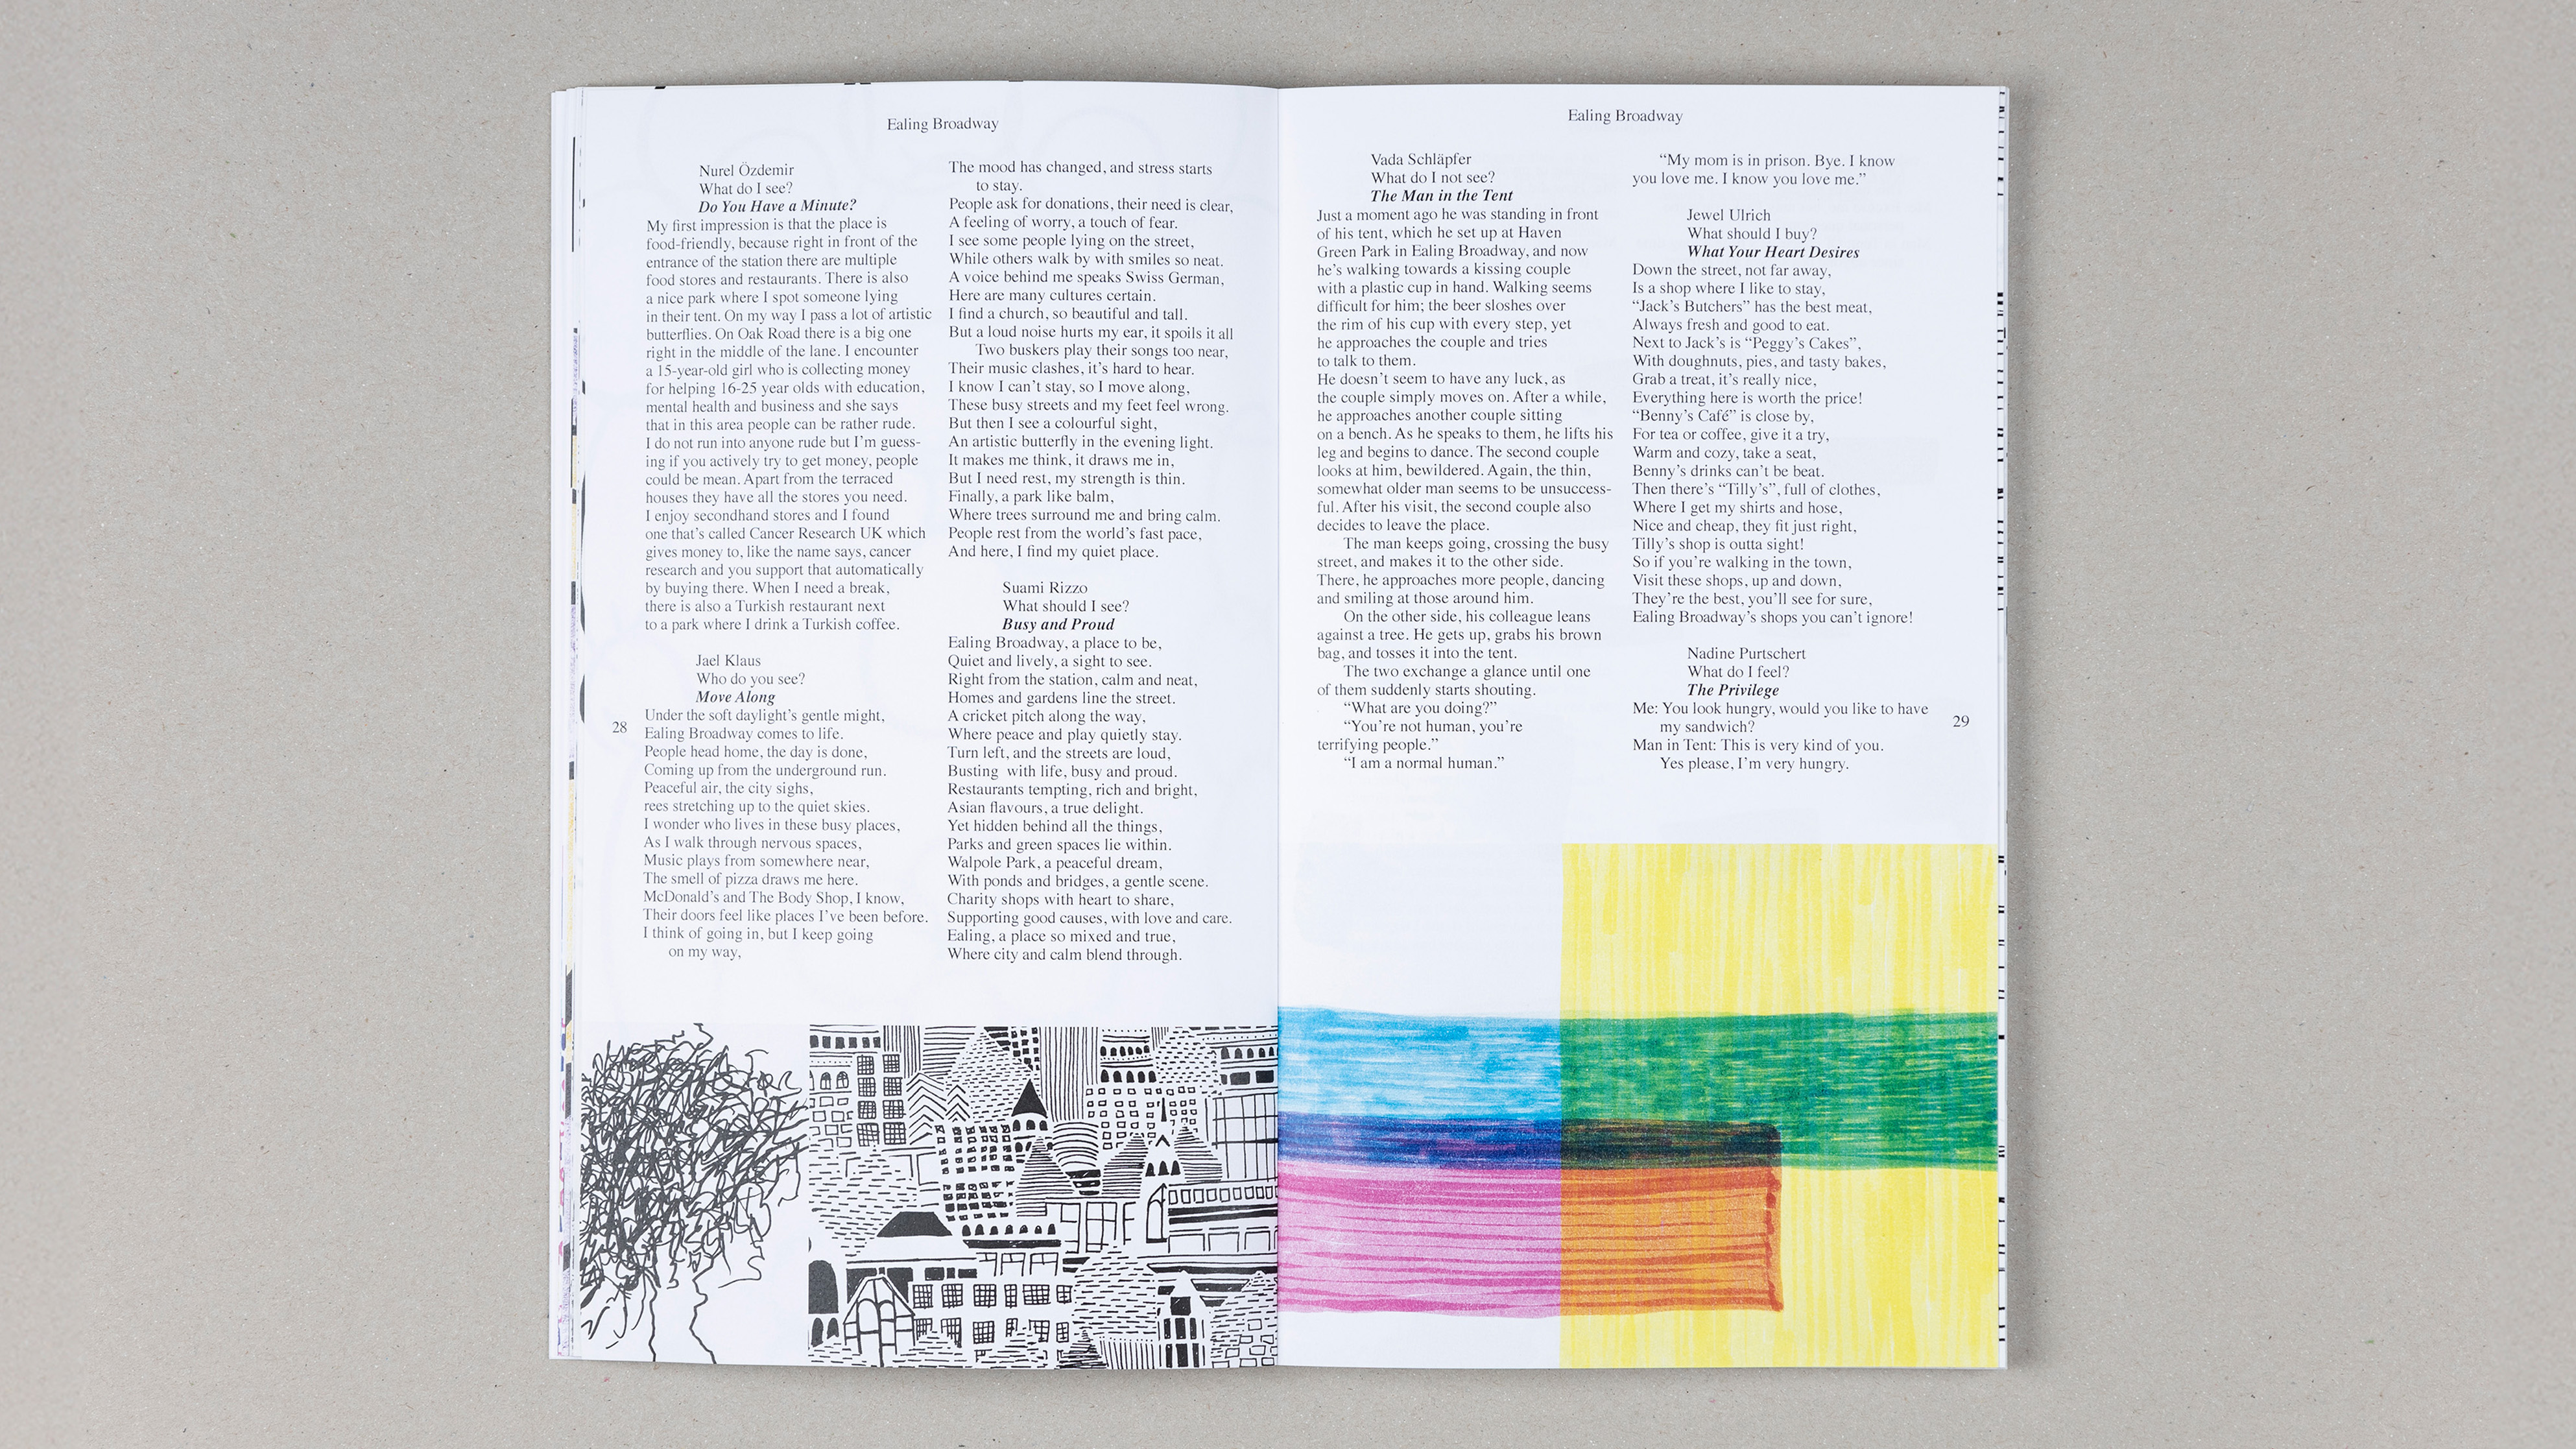 Ealing Broadway
Nurel Özdemir
What do I see?
Do You Have a Minute?
My first impression is that the place is
food-friendly, because right in front of the
entrance of the station there are multiple
food stores and restaurants. There is also
a nice park where I spot someone lying
in their tent. On my way I pass a lot of artistic
butterflies. On Oak Road there is a big one
right in the middle of the lane. I encounter
a 15-year-old girl who is collecting money
for helping 16-25 year olds with education,
mental health and business and she says
that in this area people can be rather rude.
I do not run into anyone rude but I’m guess-
ing if you actively try to get money, people
could be mean. Apart from the terraced
houses they have all the stores you need.
I enjoy secondhand stores and I found
one that’s called Cancer Research UK which
gives money to, like the name says, cancer
research and you support that automatically
by buying there. When I need a break,
there is also a Turkish restaurant next
to a park where I drink a Turkish coffee.
Jael Klaus
Who do you see?
Move Along
Under the soft daylight’s gentle might,
Ealing Broadway comes to life.
People head home, the day is done,
Coming up from the underground run.
Peaceful air, the city sighs,
rees stretching up to the quiet skies.
I wonder who lives in these busy places,
As I walk through nervous spaces,
Music plays from somewhere near,
The smell of pizza draws me here.
McDonald’s and The Body Shop, I know,
Their doors feel like places I’ve been before.
I think of going in, but I keep going
on my way,
28
The mood has changed, and stress starts
to stay.
People ask for donations, their need is clear,
A feeling of worry, a touch of fear.
I see some people lying on the street,
While others walk by with smiles so neat.
A voice behind me speaks Swiss German,
Here are many cultures certain.
I find a church, so beautiful and tall.
But a loud noise hurts my ear, it spoils it all
Two buskers play their songs too near,
Their music clashes, it’s hard to hear.
I know I can’t stay, so I move along,
These busy streets and my feet feel wrong.
But then I see a colourful sight,
An artistic butterfly in the evening light.
It makes me think, it draws me in,
But I need rest, my strength is thin.
Finally, a park like balm,
Where trees surround me and bring calm.
People rest from the world’s fast pace,
And here, I find my quiet place.
Suami Rizzo
What should I see?
Busy and Proud
Ealing Broadway, a place to be,
Quiet and lively, a sight to see.
Right from the station, calm and neat,
Homes and gardens line the street.
A cricket pitch along the way,
Where peace and play quietly stay.
Turn left, and the streets are loud,
Busting with life, busy and proud.
Restaurants tempting, rich and bright,
Asian flavours, a true delight.
Yet hidden behind all the things,
Parks and green spaces lie within.
Walpole Park, a peaceful dream,
With ponds and bridges, a gentle scene.
Charity shops with heart to share,
Supporting good causes, with love and care.
Ealing, a place so mixed and true,
Where city and calm blend through.
Ealing Broadway
Vada Schläpfer
What do I not see?
The Man in the Tent
Just a moment ago he was standing in front
of his tent, which he set up at Haven
Green Park in Ealing Broadway, and now
he’s walking towards a kissing couple
with a plastic cup in hand. Walking seems
difficult for him; the beer sloshes over
the rim of his cup with every step, yet
he approaches the couple and tries
to talk to them.
He doesn’t seem to have any luck, as
the couple simply moves on. After a while,
he approaches another couple sitting
on a bench. As he speaks to them, he lifts his
leg and begins to dance. The second couple
looks at him, bewildered. Again, the thin,
somewhat older man seems to be unsuccess-
ful. After his visit, the second couple also
decides to leave the place.
The man keeps going, crossing the busy
street, and makes it to the other side.
There, he approaches more people, dancing
and smiling at those around him.
On the other side, his colleague leans
against a tree. He gets up, grabs his brown
bag, and tosses it into the tent.
The two exchange a glance until one
of them suddenly starts shouting.
“What are you doing?”
“You’re not human, you’re
terrifying people.”
“I am a normal human.”
“My mom is in prison. Bye. I know
you love me. I know you love me.”
Jewel Ulrich
What should I buy?
What Your Heart Desires
Down the street, not far away,
Is a shop where I like to stay,
“Jack’s Butchers” has the best meat,
Always fresh and good to eat.
Next to Jack’s is “Peggy’s Cakes”,
With doughnuts, pies, and tasty bakes,
Grab a treat, it’s really nice,
Everything here is worth the price!
“Benny’s Café” is close by,
For tea or coffee, give it a try,
Warm and cozy, take a seat,
Benny’s drinks can’t be beat.
Then there’s “Tilly’s”, full of clothes,
Where I get my shirts and hose,
Nice and cheap, they fit just right,
Tilly’s shop is outta sight!
So if you’re walking in the town,
Visit these shops, up and down,
They’re the best, you’ll see for sure,
Ealing Broadway’s shops you can’t ignore!
Nadine Purtschert
What do I feel?
The Privilege
Me: You look hungry, would you like to have
my sandwich?
Man in Tent: This is very kind of you.
Yes please, I’m very hungry.
29